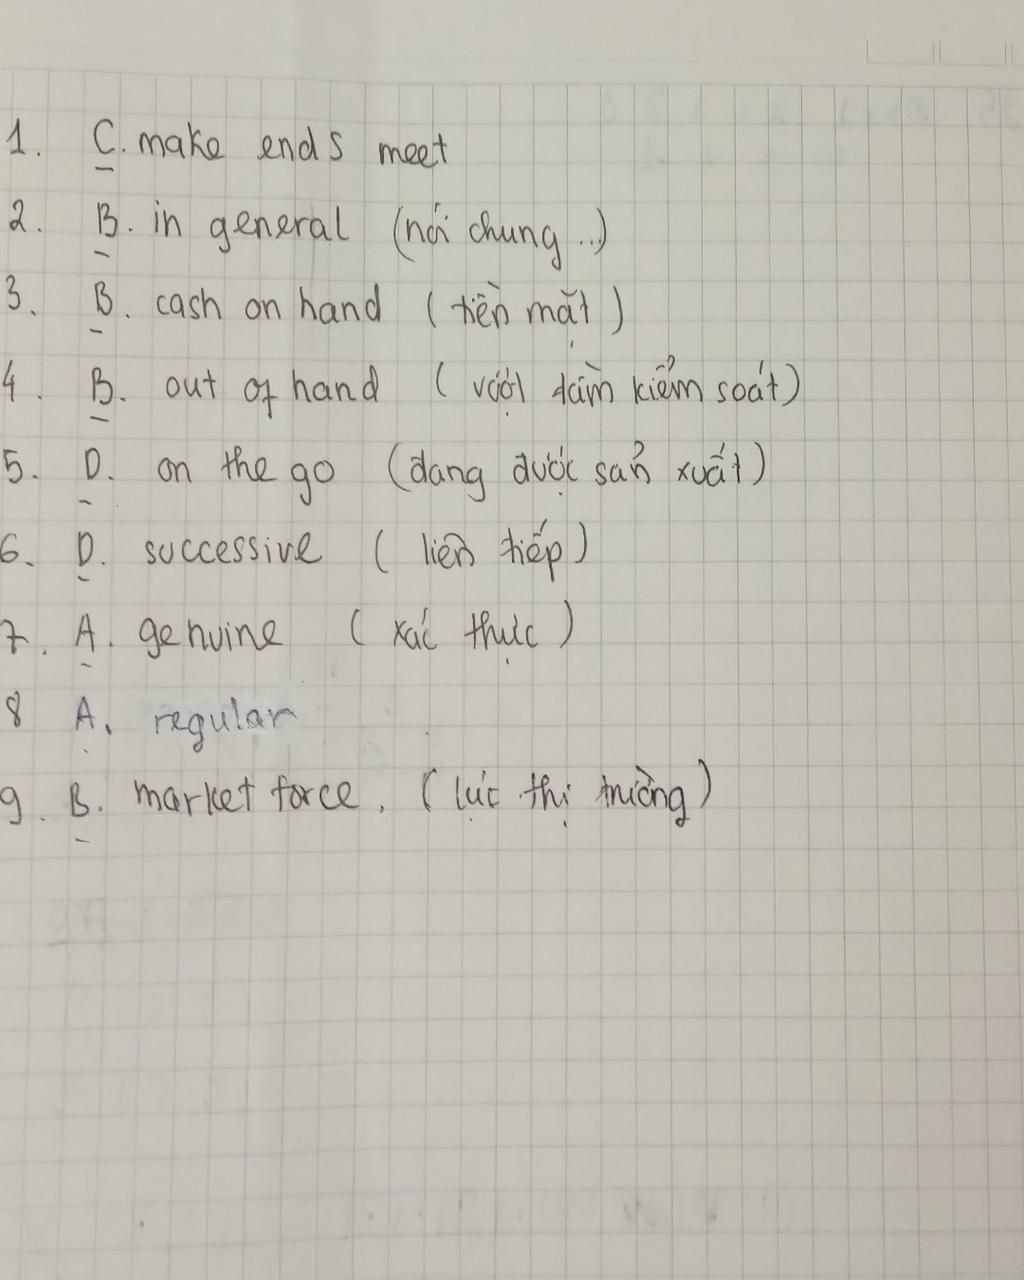 1. C. make ends meet
2. B. in general (nói chung ..)
3. B. cash on hand ( tiền mặt )
4. B. out of hand ( vượt tầm kiểm soát )
5. D. on the go (đang được sản xuất )
6. D. successive ( liên tiếp )
7. A. genuine ( xác thực )
8 A. regular
9. B. market force. ( lực thị trường )